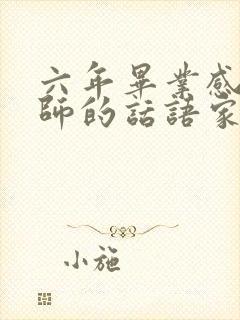 六年畢業感
師的話語家
小施